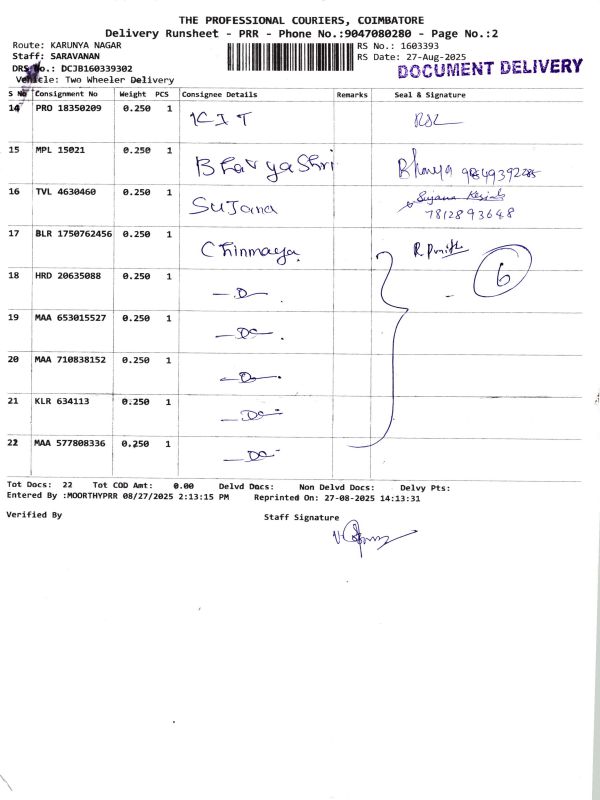 THE PROFESSIONAL COURIERS, COIMBATORE
Delivery Runsheet - PRR - Phone No.:9047080280 - Page No.:2
Route: KARUNYA NAGAR
RS No.: 1603393
Staff: SARAVANAN
RS Date: 27-Aug-2025
DRS No.: DCJB160339302
DOCUMENT DELIVERY
Vehicle: Two Wheeler Delivery
S No Consignment No Weight PCS Consignee Details Remarks Seal & Signature
14 PRO 18350209 0.250 1 KIT
15 MPL 15021 0.250 1 Bhavyashri Bhavya
16 TVL 4630460 0.250 1 SuJana Sujana
7812893648
17 BLR 1750762456 0.250 1 Chinmaya. R. 6
18 HRD 20635088 0.250 1 — D — .
19 MAA 653015527 0.250 1 — Do — .
20 MAA 710838152 0.250 1 — Do — .
21 KLR 634113 0.250 1 — Do —
22 MAA 577808336 0.250 1 — Do —
Tot Docs: 22 Tot COD Amt: 0.00 Delvd Docs: Non Delvd Docs: Delvy Pts:
Entered By :MOORTHYPRR 08/27/2025 2:13:15 PM Reprinted On: 27-08-2025 14:13:31
Verified By Staff Signature